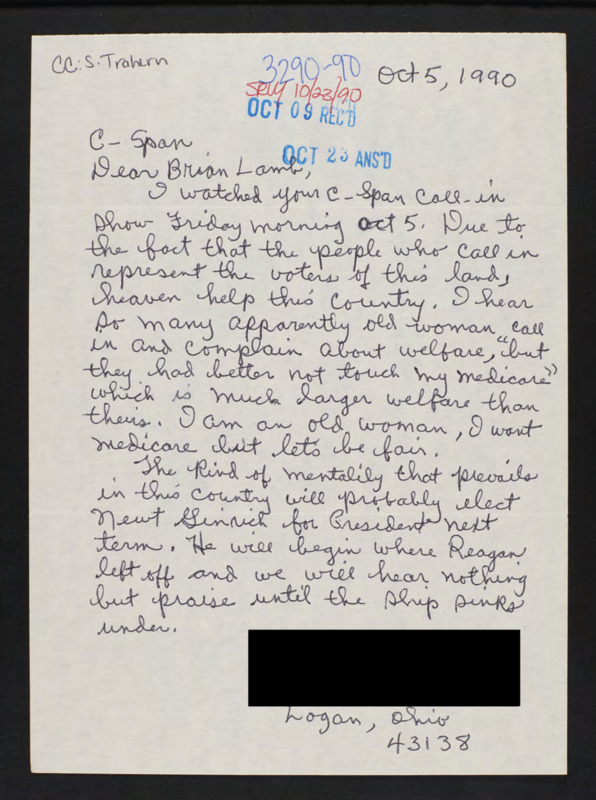 CC: S. Trahern
3290-90
Oct 5, 1990
10/23/90
OCT 09 REC'D
C-Span
OCT 23 ANS'D
Dear Brian Lamb,
I watched your C-Span Call-in
show Friday morning Oct 5. Due to
the fact that the people who call in
represent the voters of this land,
heaven help this country. I hear
so many apparently old woman call
in and complain about welfare, "but
they had better not touch my medicare"
which is much larger welfare than
theirs. I am an old woman, I want
medicare but lets be fair.
The kind of mentality that prevails
in this country will probably elect
Newt Ginrich for President next
term. He will begin where Reagan
left off and we will hear nothing
but praise until the ship sinks
under.
Logan, Ohio
43138